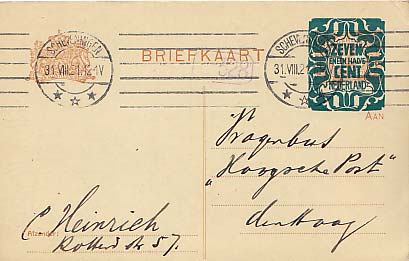 SCHEVENINGEN
31.VIII.21.12-1V
BRIEFKAART
SCHEVENINGEN
31.VIII.21
ZEVEN
EN EEN HALVE
CENT
NEDERLAND
AAN
Vragenbus
„Haagsche Post"
den Haag
Afzender:
C Heinrich
Rotterd. str 57.